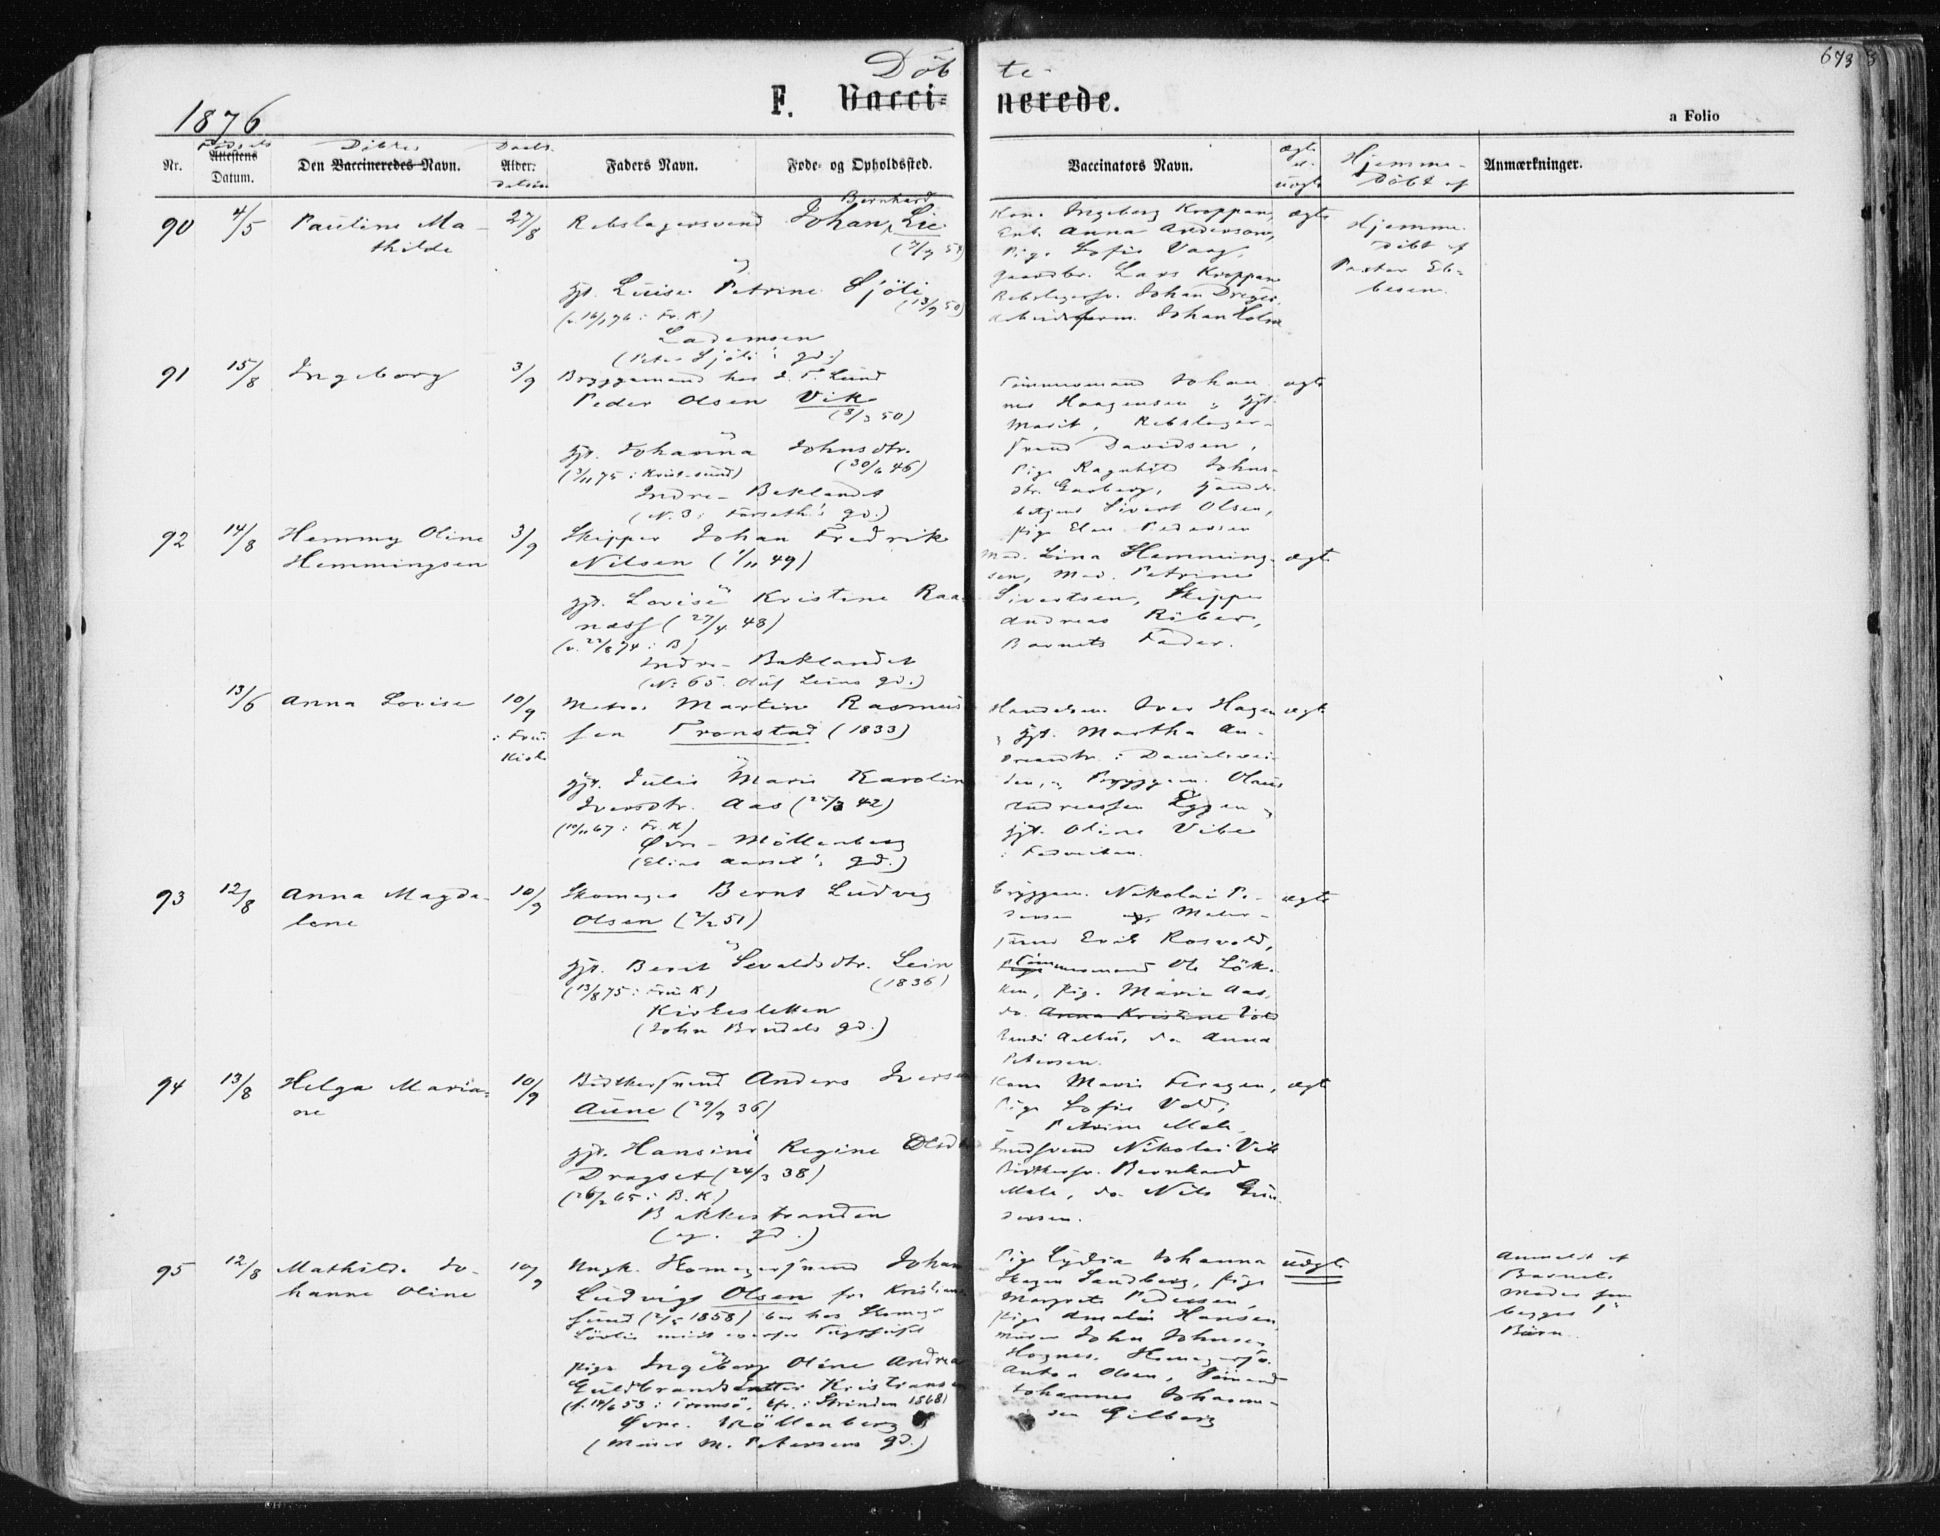 Döb te
673
1876
F. Vacci= nerede.
a Folio
Nr.
Fødsels
Attestens Datum.
Döbtes
Den Vaccineredes Navn.
Daabs
Alder.
Faders Navn.
Føde- og Opholdssted.
Vaccinators Navn.
ægte
el.
uægte
Hjemme-
Döbt af
Anmærkninger.
90
4/5
Pauline Ma-
thilde
27/8
Bernhard
Rebslagersvend Johan Lie
og
gjt. Luise Petrine Sjöli
(13/9 50)
Lademoen
(Peter Sjöli's gd.)
Kone Ingeborg Kroppan,
Enk. Anna Anderson,
Pige Sofie Vaag,
Gaardbr. Lars Kroppan
Rebslagersv. Johan Dreyer
Arbeidsform. Johan Holm
ægte
Hjemme
döbt af
Pastor Eb-
besen
91
15/8
Ingeborg
3/9
Bryggemand hos I. F. Lund
Peder Olsen Vik
(8/3 50)
gjt. Johanna Johnsdtr.
(3/11 75 i Krist.sund) (30/6 46)
Indre- Baklandet
(N. 3, Forseth's gd.)
Tömmermand Johan-
nes Haagensen, gjt.
Marit, Rebslager-
svend Davidsen,
Pige Ragnhild Johns-
dtr. Garberg, Handels-
betjent Sivert Olsen,
Pige Elen Pedersen
ægte
92
14/8
Hemmy Oline
Hemmingsen
3/9
Skipper Johan Fredrik
Nilsen (1/11 49)
og
gjt. Lovise Kristine Raa-
næss (27/4 48)
(v. 22/8 74 i B)
Indre- Baklandet
(N. 65. Oluf Leins gd.)
Mad. Lina Hemming-
sen, Mad. Petrine
Sivertsen, Skipper
Andreas Röber,
Barnets Fader.
ægte
13/6
Anna Lovise
10/9
i Frue
Kirke
Matros Martin Rasmus-
sen Tronstad (1833)
og
gjt. Julie Marie Karoline
Iversdtr. Aas (25/3 42)
(10/11 67 i Fr. K)
Øvre- Möllenberg
(Elias Aunet's gd.)
Handelsm. Iver Hagen
gjt. Martha An-
dreasdtr. i Danielsvei-
ten, Bryggem. Olaus
Andreassen Eggen
gjt. Oline Vibe
ægte
93
12/8
Anna Magda-
lene
10/9
Skomager Bernt Ludvig
Olsen (2/2 51)
og
gjt. Berit Sevaldsdtr. Lein
(13/8 75 i Frue K) (1836)
Kirkesletten
(John Brudals gd.)
Bryggem. Nikolai Pe-
dersen og Maler-
svend Erik Rosvold,
Tömmermand Ole Lök-
ken, Pige Marie Aas,
do. Anna Kristine
Randi Aalbu, do Anna
Petersen.
ægte
94
13/8
Helga Maria-
ne
10/9
Bödkersvend Anders Iversen
Aune (29/9 36)
gjt. Hansine Regine Olsdtr
Dragset (24/3 38)
(26/2 65 i B. K)
Bakkestranden
(eg. gd.)
Kone Marie Feragen,
Pige Sofie Vold,
Petrine Male
Smedsvend Nikolai Vik
Bödkersv. Bernhard
Male, do Nils Gun-
dersen.
ægte
95
12/8
Mathilde Jo-
hanne Oline
10/9
Ungk. Skomagersvend Johan
Ludvig Olsen fra Kristian-
sund (2/5 1858) bor hos Skomager
og
Pige Ingeborg Oline Andrea
Guldbrandsdatter Kristiansen
(f. 14/6 53 i Tromsö, kfr. i Strinden 1868)
Øvre- Möllenberg
(Murer M. Petersens gd.)
Pige Lydia Johanna
Skagen Sandberg, Pige
Margrete Pedersen,
Pige Amalie Hansen
Murer John Johnsen
Hognes, Skomagersv.
Anton Olsen,
Johannes Johannes-
sen Gilberg
uægte
Anmeldt af
Barnets
Moder som
begges 1ste
Barn.